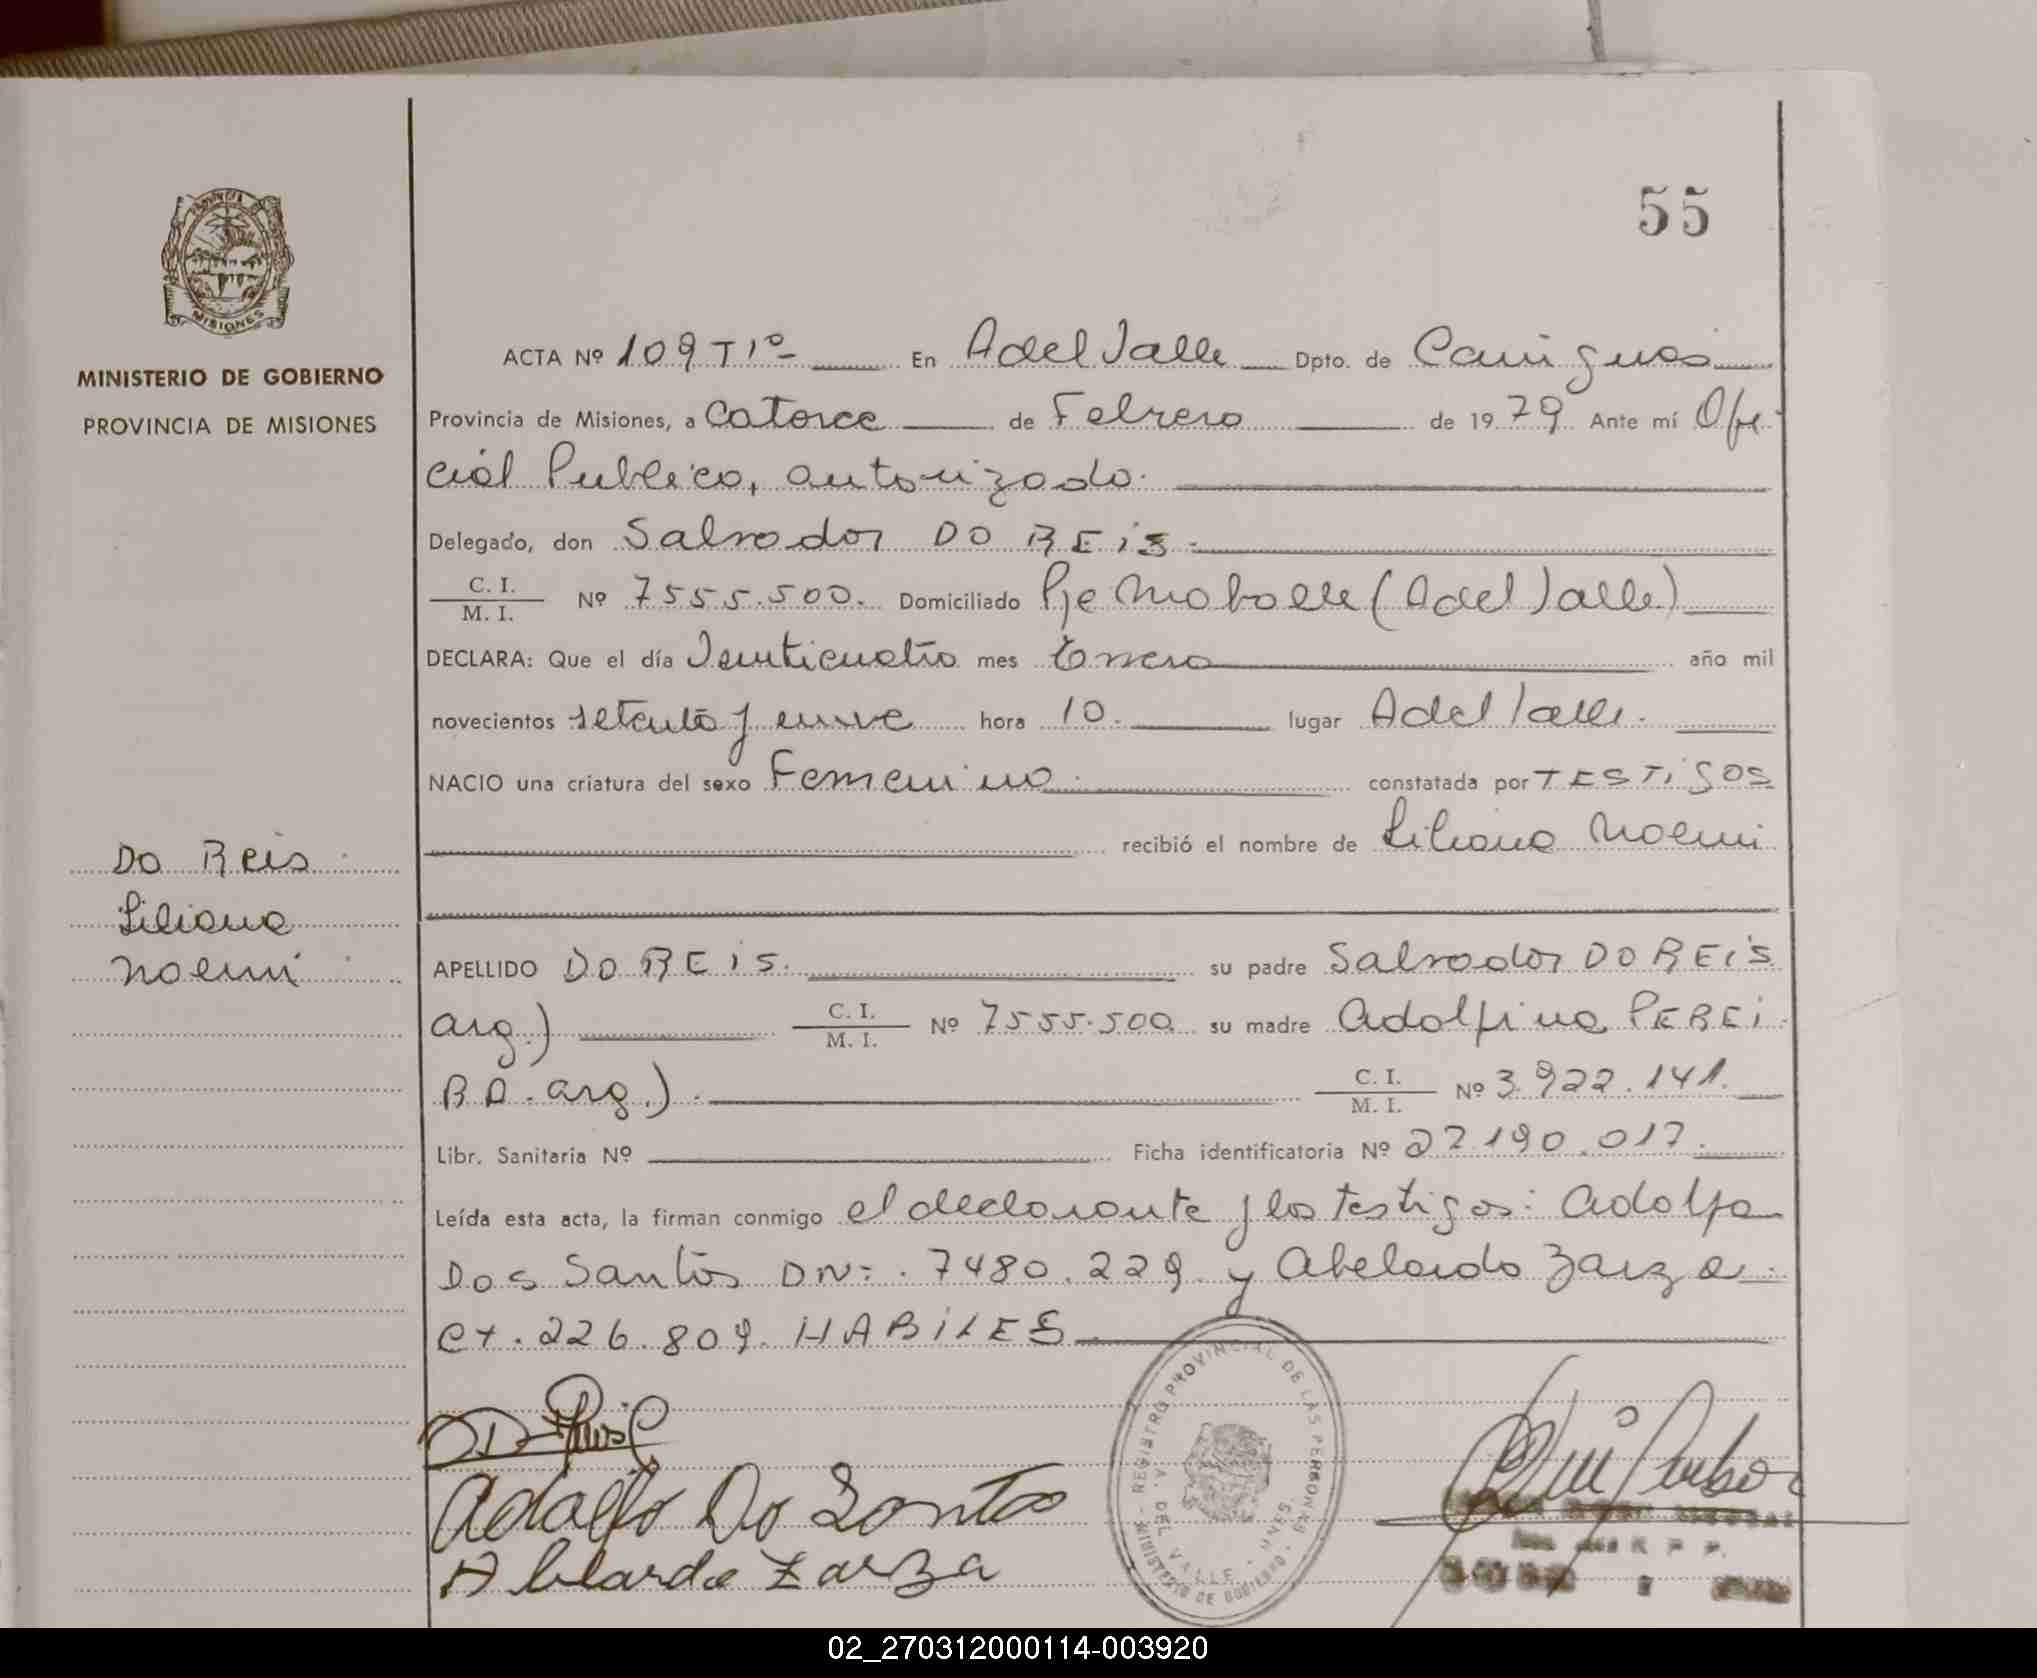 55
PROVINCIA DE
MISIONES
MINISTERIO DE GOBIERNO
PROVINCIA DE MISIONES
ACTA Nº 109 T1º En A del Valle Dpto. de Cainguas
Provincia de Misiones, a Catorce de Febrero de 1979 Ante mí Ofi-
cial Publico, autorizado.
Delegado, don Salvador DO REiS.
C. I.
M. I.
Nº 7555.500. Domiciliado Pje (A del Valle)
DECLARA: Que el día Veinticuatro mes Enero año mil
novecientos setenta y nueve hora 10. lugar A del Valle.
NACIO una criatura del sexo Femenino. constatada por TESTiGOS
recibió el nombre de Liliana Noemi
Do Reis
Liliana
Noemi
APELLIDO DO REiS. su padre Salvador DO REiS
arg.) C. I.
M. I.
Nº 7555.500 su madre Adolfina PEREi
RA. arg.). C. I.
M. I.
Nº 3.922.141.
Libr. Sanitaria Nº Ficha identificatoria Nº 27.190.017.
Leída esta acta, la firman conmigo el declarante y los testigos: Adolfo
Dos Santos DN: 7480.229 y Abelardo Zarza
CI. 226.809. HABiLES
Adolfo Do Santos
Abelardo Zarza
REGISTRO PROVINCIAL DE LAS PERSONAS
MINISTERIO DE GOBIERNO
A. DEL VALLE - MNES.
02_270312000114-003920